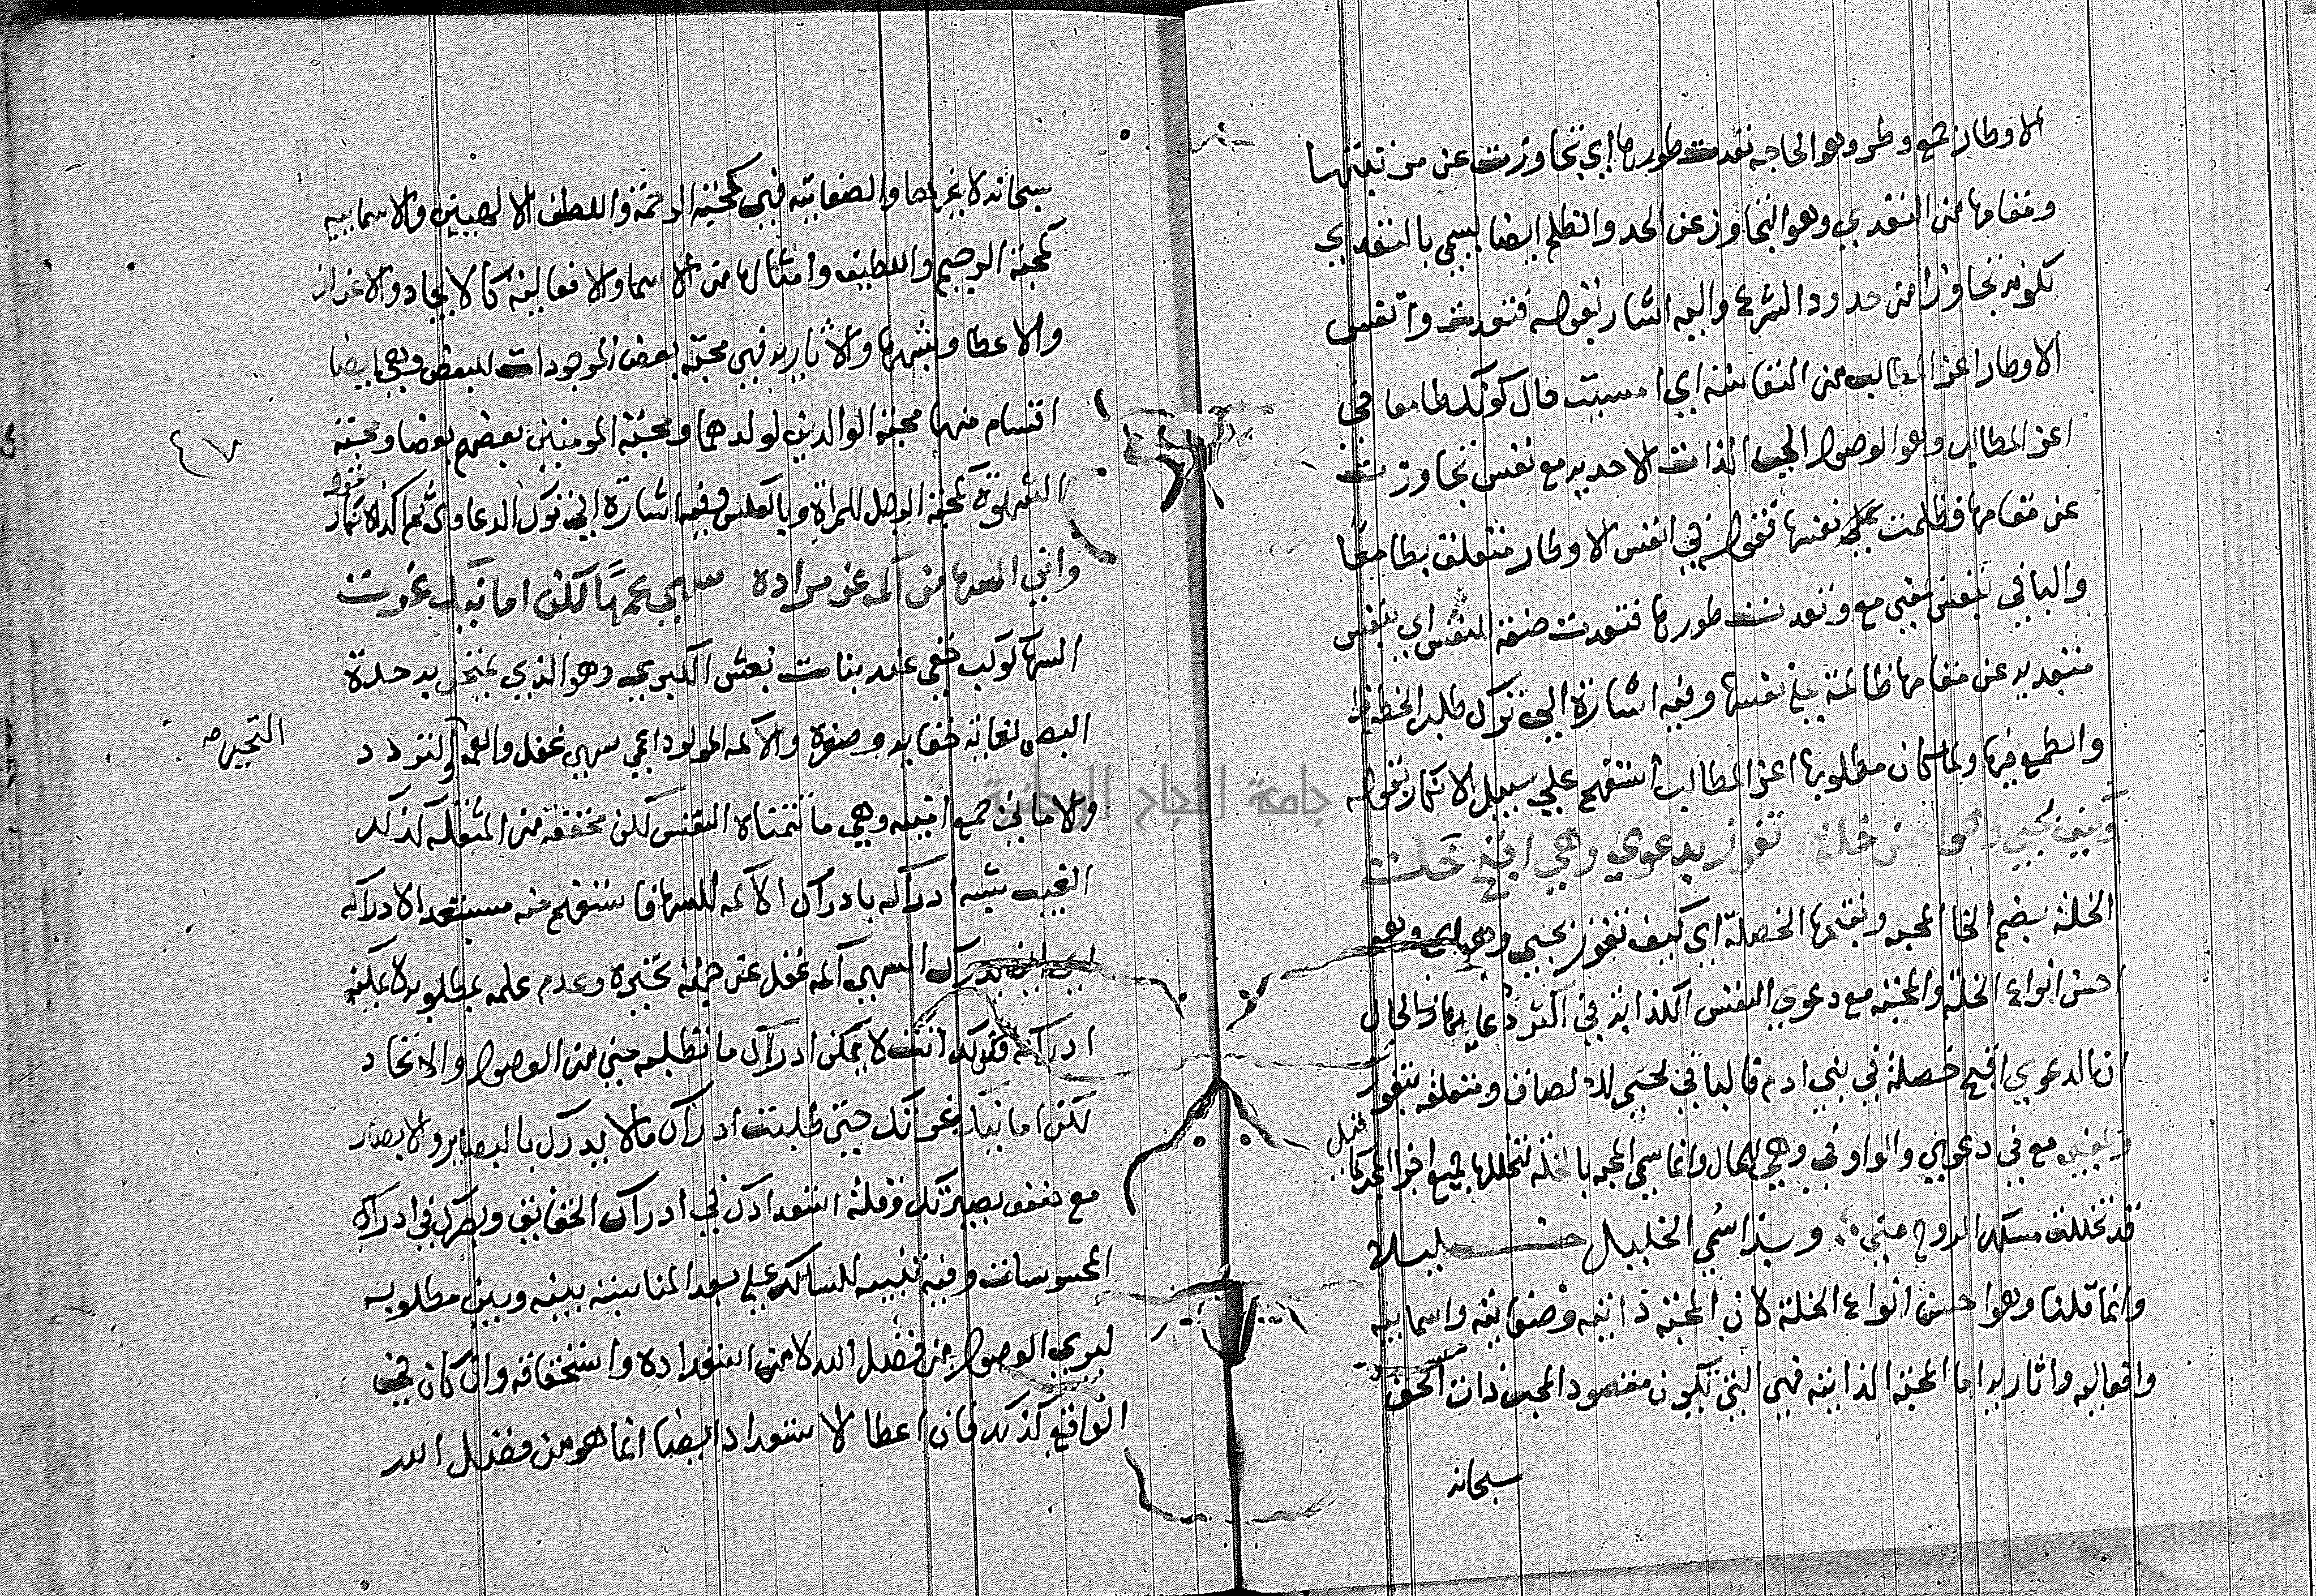 الاوطار جمع وطر وهو الحاجه تعدت طورها اي تجاوزت عن مرتبتها
ومقامها من التعدي وهو التجاوز عن الحد والظلم ايضا يسمي بالتعدي
لكونه تجاوزا من حدود الشرع واليه اشار بقوله فتعدت وانفس
الاوطار اعز المطالب من النفاسة اي امسيت حال كونك طامعا في
اعز المطالب وهو الوصول الي الذات الاحديه مع نفس تجاوزت
عن مقامها فظلمت علي نفسها فقوله في انفس الاوطار متعلق بطامعا
والبا في بنفس بمعني مع وتعدت طورها فتعدت صفة لنفس اي بنفس
متعديه عن مقامها ظالمة علي نفسها وفيه اشارة الي ترك طلب الحظ
والطمع فيها ولما كان مطلوبها اعز المطالب استفهم علي سبيل الانكار بقوله
وكيف بحبي وهو احسن خلة تفوز بدعوي وهي اقبح خلت
الخلة بضم الخا المحبه وبفتحها الخصلة اي كيف تفوز بحبي وهو اي وهو
احسن انواع الخلة والمحبة مع دعوي النفس الكذابه في اكثر دعاويها والحال
ان الدعوي اقبح خصلة في بني ادم فالبا في بحبي للالصاق ومتعلقه بتفوز
وبمعني مع في دعوي والواو في وهي للحال وانما سمي المحبه بالخلة لتخللها جميع اجزا المحب كما قيل
قد تخللت مسلك الروح مني وبذا سمي الخليل خليلا
وانما قلنا وهو احسن انواع الخلة لان المحبة ذاتيه وصفاتيه واسماييه
وافعاليه واثاريه اما المحبة الذاتيه فهي التي تكون مقصود المحب ذات الحق
سبحانه
سبحانه لا غيرها والصفاتيه فهي كمحبة الرحمة واللطف الالهيين والاسماييه
كمحبة الرحيم واللطيف وامثالها من الاسما والافعاليه كالايجاد والاعزاز
والاعطا وشبهها والاثاريه فهي محبة بعض الموجودات للبعض وهي ايضا
اقسام منها محبة الوالدين لولدهما ومحبة المومنين بعضهم بعضا ومحبة
الشهوة كمحبة الرجل للمراة وبالعكس وفيه اشارة الي ترك الدعاوي ثم
واين السها من اكمه عن مراده سهي عمها لكن امانيك غرت
السها كوكب خفي عند بنات نعش الكبري وهو الذي يمتحن به حدة
البصر لغاية خفايه وصغره والاكمه المولود اعمي سهي غفل والعمه التردد
التحير صح
والاماني جمع امنيه وهي ما تتمناه النفس لكن مخففه من المثقله كذلك
الغيب شبه ادراكه بادراك الاكمه للسها فاستفهم منه مستبعد الادراكه
اي اين يدرك السهي اكمه غفل عن جهة تحيره وعدم علمه بمطلوبه لا يمكنه
ادراكه فكذلك انت لا يمكن ادراك ما تطلبه مني من الوصول والاتحاد
لكن امانيك غرتك حتي طلبت ادراك ما لا يدرك بالبصاير والابصار
مع ضعف بصيرتك وقلة استعدادك في ادراك الحقايق وبصرك في ادراك
المحسوسات وفيه تنبيه للسالك علي بعد المناسبة بينه وبين مطلوبه
ليري الوصول من فضل الله لا من استعداده واستحقاقه وان كان في
الواقع كذلك فان اعطا الاستعداد ايضا انما هو من فضل الله
٤٧
جامعة النجاح الوطنية